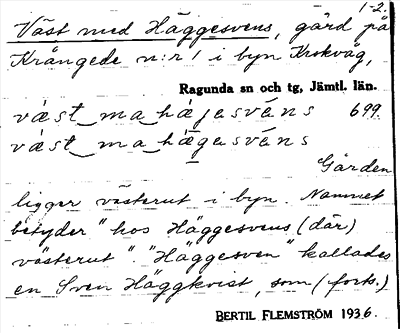 1-2.
Väst med Häggesvens, gård på
Krångede n:r 1 i byn Krokvåg,
Ragunda sn och tg, Jämtl. län.
väst ma häjesväns 699.
väst ma hägesväns
Gården
ligger västerut i byn. Namnet
betyder "hos Häggesvens (där)
västerut". "Häggesven" kallades
en Sven Häggkvist, som (forts.)
BERTIL FLEMSTRÖM 1936.